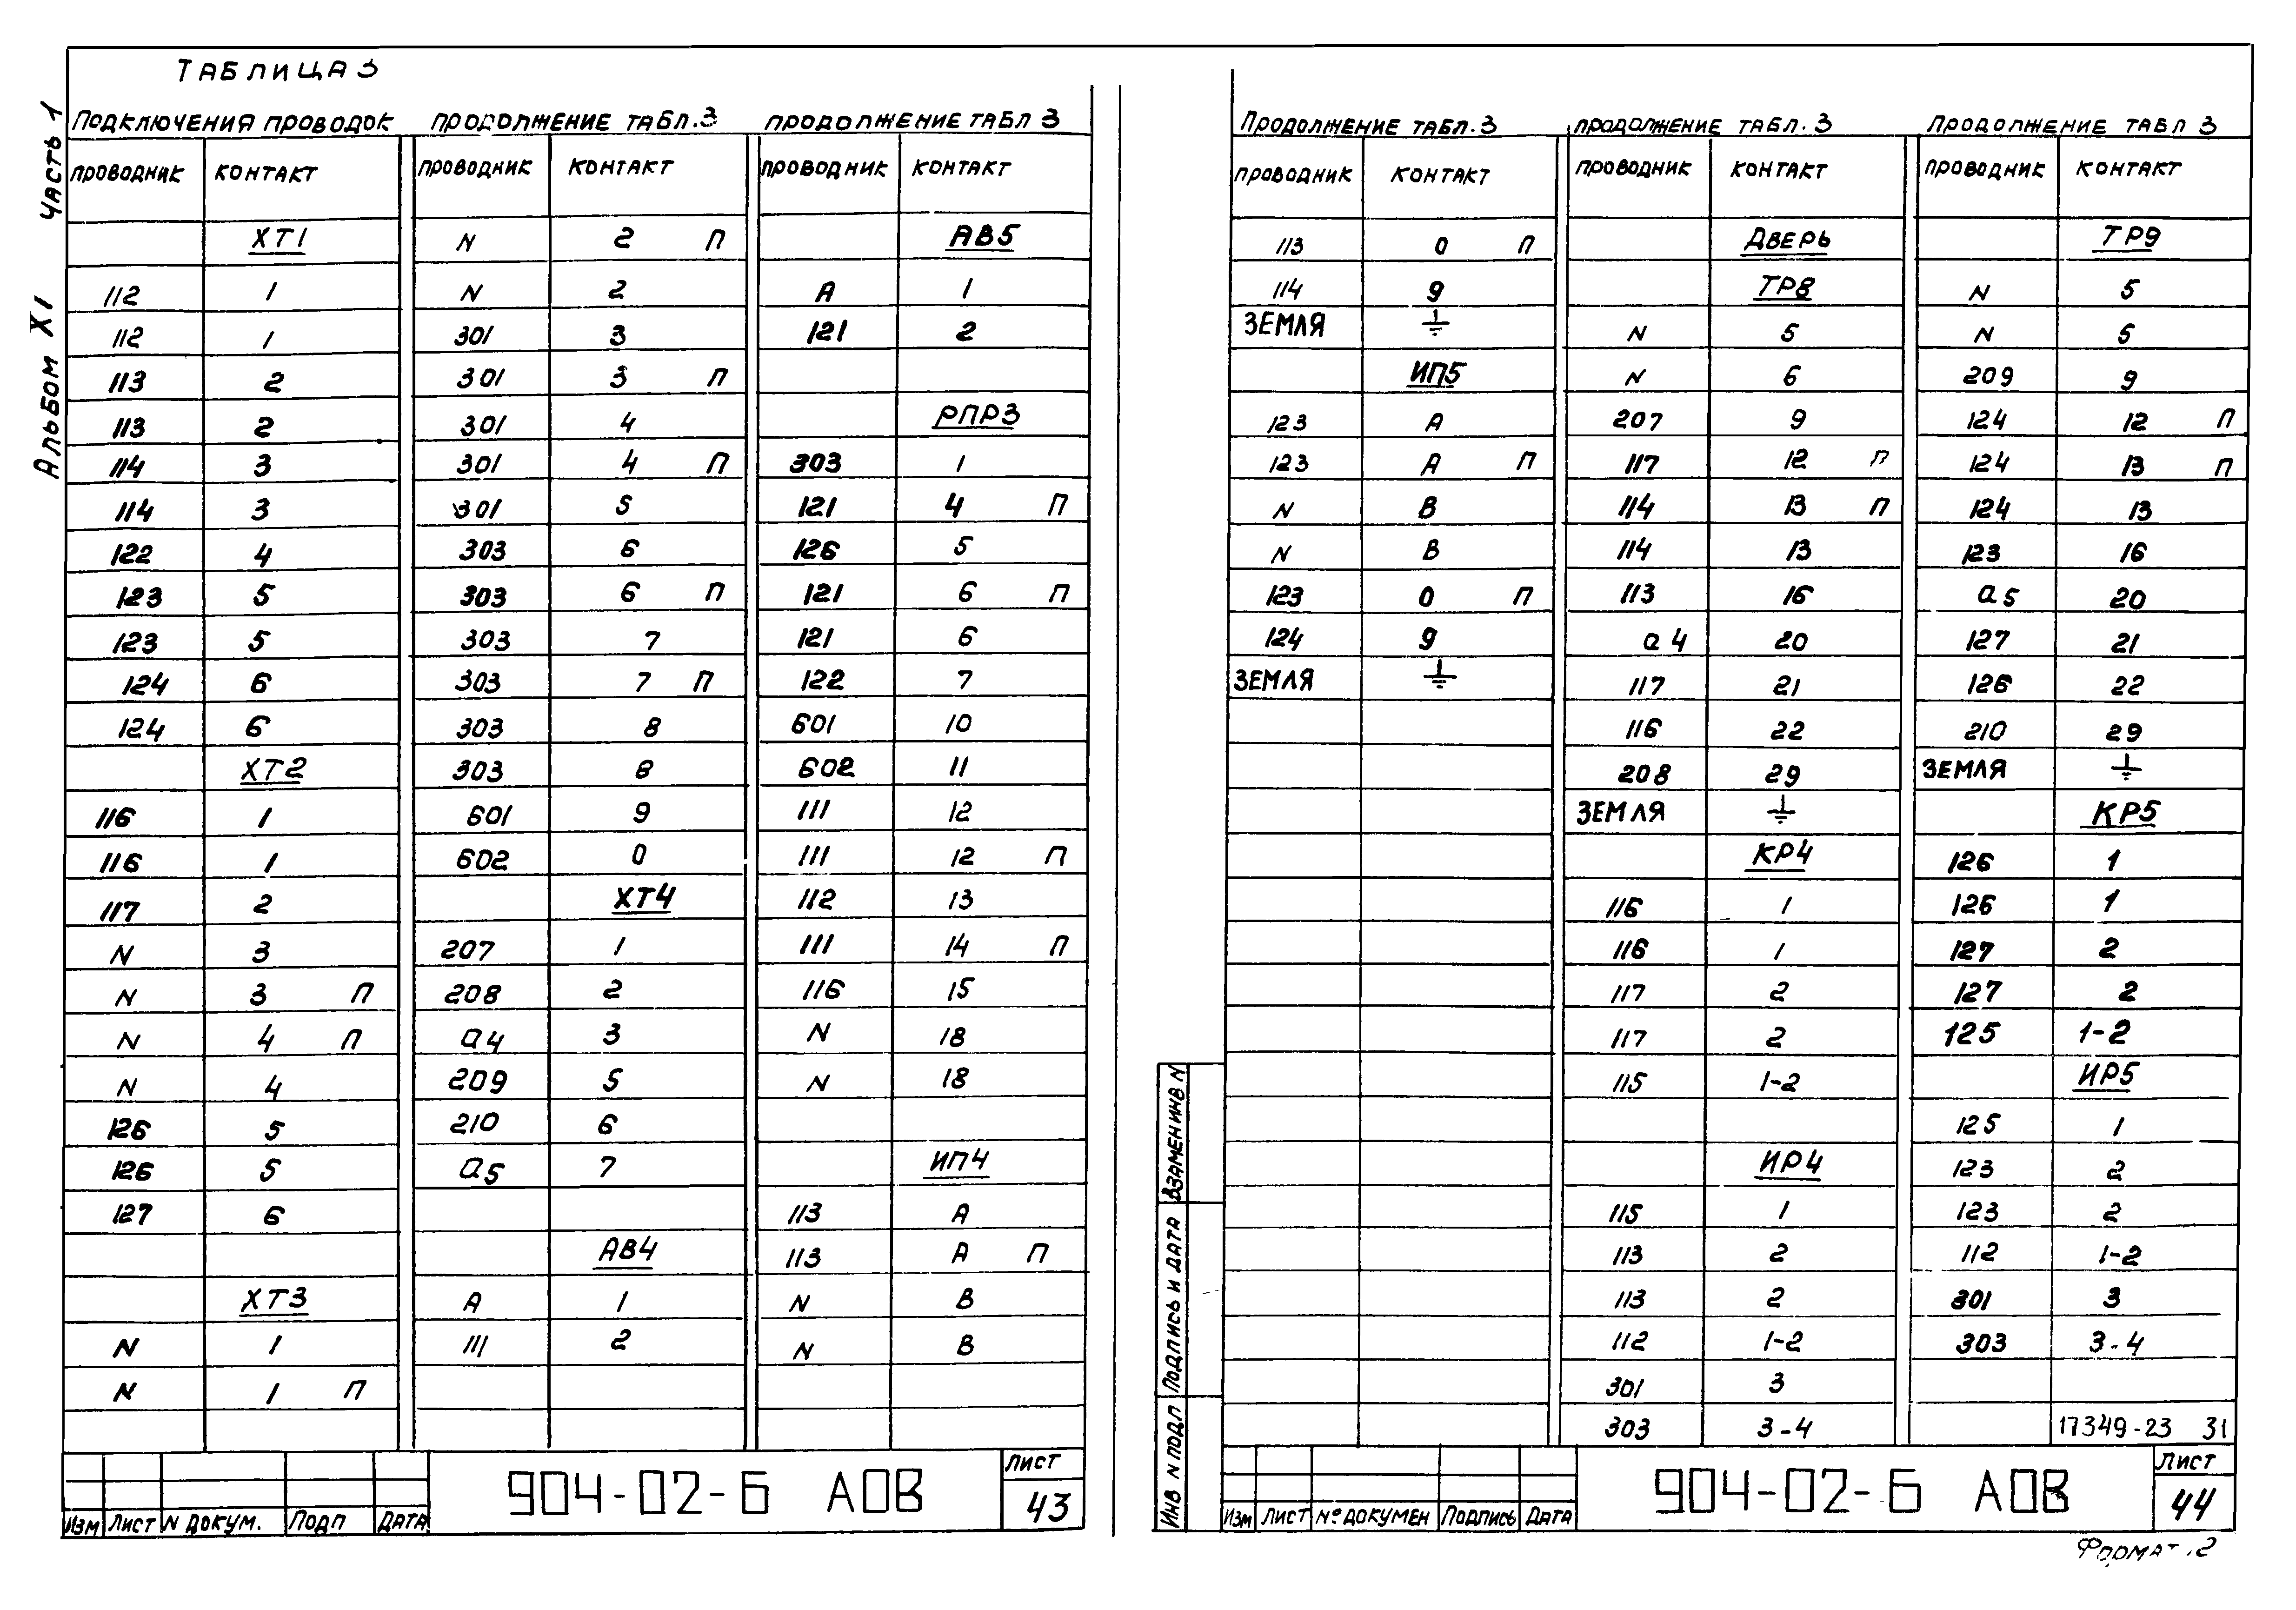 Альбом XI Часть 1
ТАБЛИЦА 3
Подключения проводок
проводник контакт
ХТ1
112 1
112 1
113 2
113 2
114 3
114 3
122 4
123 5
123 5
124 6
124 6
ХТ2
116 1
116 1
117 2
N 3
N 3 П
N 4 П
N 4
126 5
126 5
127 6
ХТ3
N 1
N 1 П
продолжение табл.3
проводник контакт
N 2 П
N 2
301 3
301 3 П
301 4
301 4 П
301 5
303 6
303 6 П
303 7
303 7 П
303 8
303 8
601 9
602 0
ХТ4
207 1
208 2
а4 3
209 5
210 6
а5 7
АВ4
А 1
111 2
продолжение табл 3
проводник контакт
АВ5
А 1
121 2
РПР3
303 1
121 4 П
126 5
121 6 П
121 6
122 7
601 10
602 11
111 12
111 12 П
112 13
111 14 П
116 15
N 18
N 18
ИП4
113 А
113 А П
N В
N В
Изм Лист N докум. Подп Дата
904-02-Б АОВ
Лист
43
Продолжение табл.3
проводник контакт
113 0 П
114 9
ЗЕМЛЯ ⏚
ИП5
123 А
123 А П
N В
N В
123 0 П
124 9
ЗЕМЛЯ ⏚
продолжение табл.3
проводник контакт
ДВЕРЬ
ТР8
N 5
N 6
207 9
117 12 П
114 13 П
114 13
113 16
а4 20
117 21
116 22
208 29
ЗЕМЛЯ ⏚
КР4
116 1
116 1
117 2
117 2
115 1-2
ИР4
115 1
113 2
113 2
112 1-2
301 3
303 3-4
Продолжение табл 3
проводник контакт
ТР9
N 5
N 5
209 9
124 12 П
124 13 П
124 13
123 16
а5 20
127 21
126 22
210 29
ЗЕМЛЯ ⏚
КР5
126 1
126 1
127 2
127 2
125 1-2
ИР5
125 1
123 2
123 2
112 1-2
301 3
303 3-4
17349-23 31
Инв N подл Подпись и дата Взамен инв N
Изм Лист №докумен Подпись Дата
904-02-Б АОВ
Лист
44